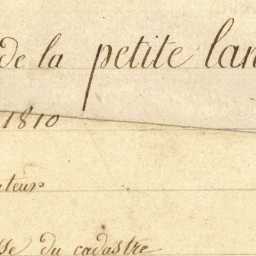 de la petite lan
1810
ateur
sse du cadastre